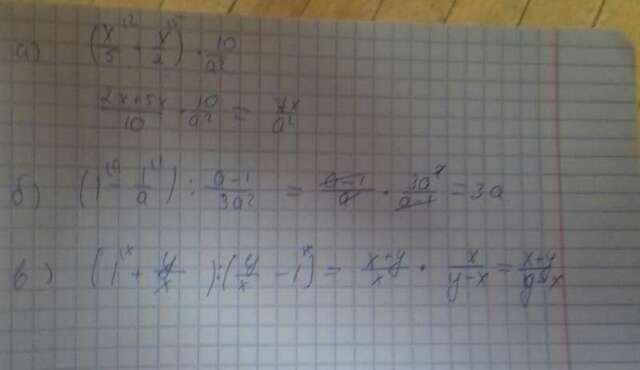 а) (x/5 + x/2) · 10/a²
(2x+5x)/10 · 10/a² = 7x/a²
б) (1 - 1/a) : (a-1)/3a² = (a-1)/a · 3a²/(a-1) = 3a
в) (1 + y/x) : (y/x - 1) = (x+y)/x · x/(y-x) = (x+y)/(y-x)